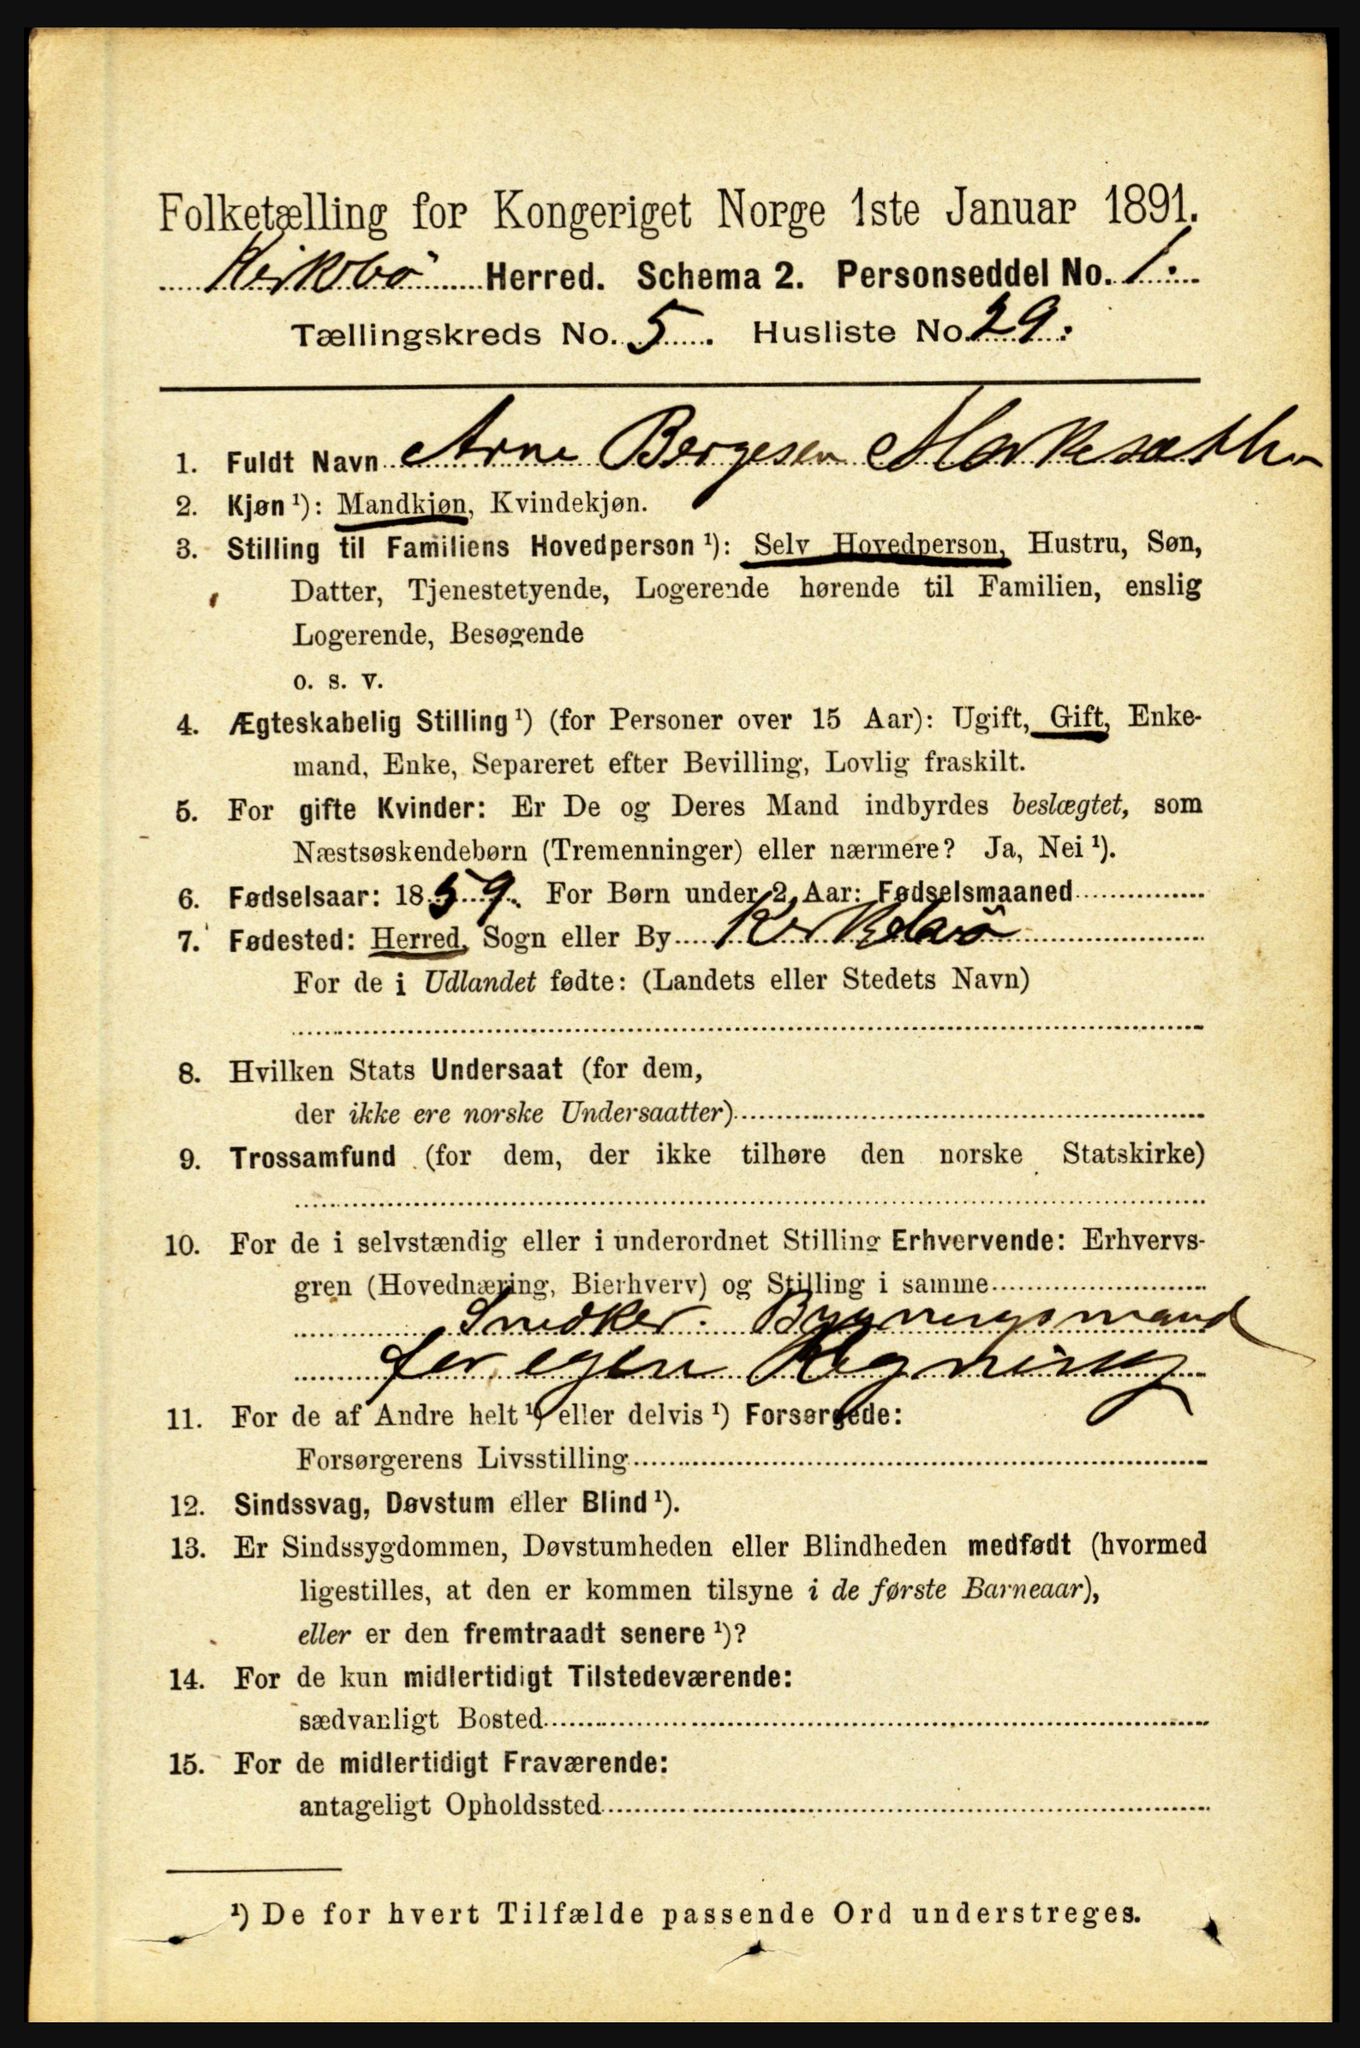 Folketælling for Kongeriget Norge 1ste Januar 1891.
Kirkebö Herred. Schema 2. Personseddel No. 1.
Tællingskreds No. 5. Husliste No. 29.
1. Fuldt Navn Arne Bergesen
2. Kjøn ¹): Mandkjøn, Kvindekjøn.
3. Stilling til Familiens Hovedperson ¹): Selv Hovedperson, Hustru, Søn,
Datter, Tjenestetyende, Logerende hørende til Familien, enslig
Logerende, Besøgende
o. s. v.
4. Ægteskabelig Stilling ¹) (for Personer over 15 Aar): Ugift, Gift, Enke-
mand, Enke, Separeret efter Bevilling, Lovlig fraskilt.
5. For gifte Kvinder: Er De og Deres Mand indbyrdes beslægtet, som
Næstsøskendebørn (Tremenninger) eller nærmere? Ja, Nei ¹).
6. Fødselsaar: 1859. For Børn under 2 Aar: Fødselsmaaned
7. Fødested: Herred, Sogn eller By Kirkebö
For de i Udlandet fødte: (Landets eller Stedets Navn)
8. Hvilken Stats Undersaat (for dem,
der ikke ere norske Undersaatter)
9. Trossamfund (for dem, der ikke tilhøre den norske Statskirke)
10. For de i selvstændig eller i underordnet Stilling Erhvervende: Erhvervs-
gren (Hovednæring, Bierhverv) og Stilling i samme
Snedker. Bygningsmand
for egen Regning
11. For de af Andre helt ¹) eller delvis ¹) Forsørgede:
Forsørgerens Livsstilling
12. Sindssvag, Døvstum eller Blind ¹).
13. Er Sindssygdommen, Døvstumheden eller Blindheden medfødt (hvormed
ligestilles, at den er kommen tilsyne i de første Barneaar),
eller er den fremtraadt senere ¹)?
14. For de kun midlertidigt Tilstedeværende:
sædvanligt Bosted
15. For de midlertidigt Fraværende:
antageligt Opholdssted
¹) De for hvert Tilfælde passende Ord understreges.